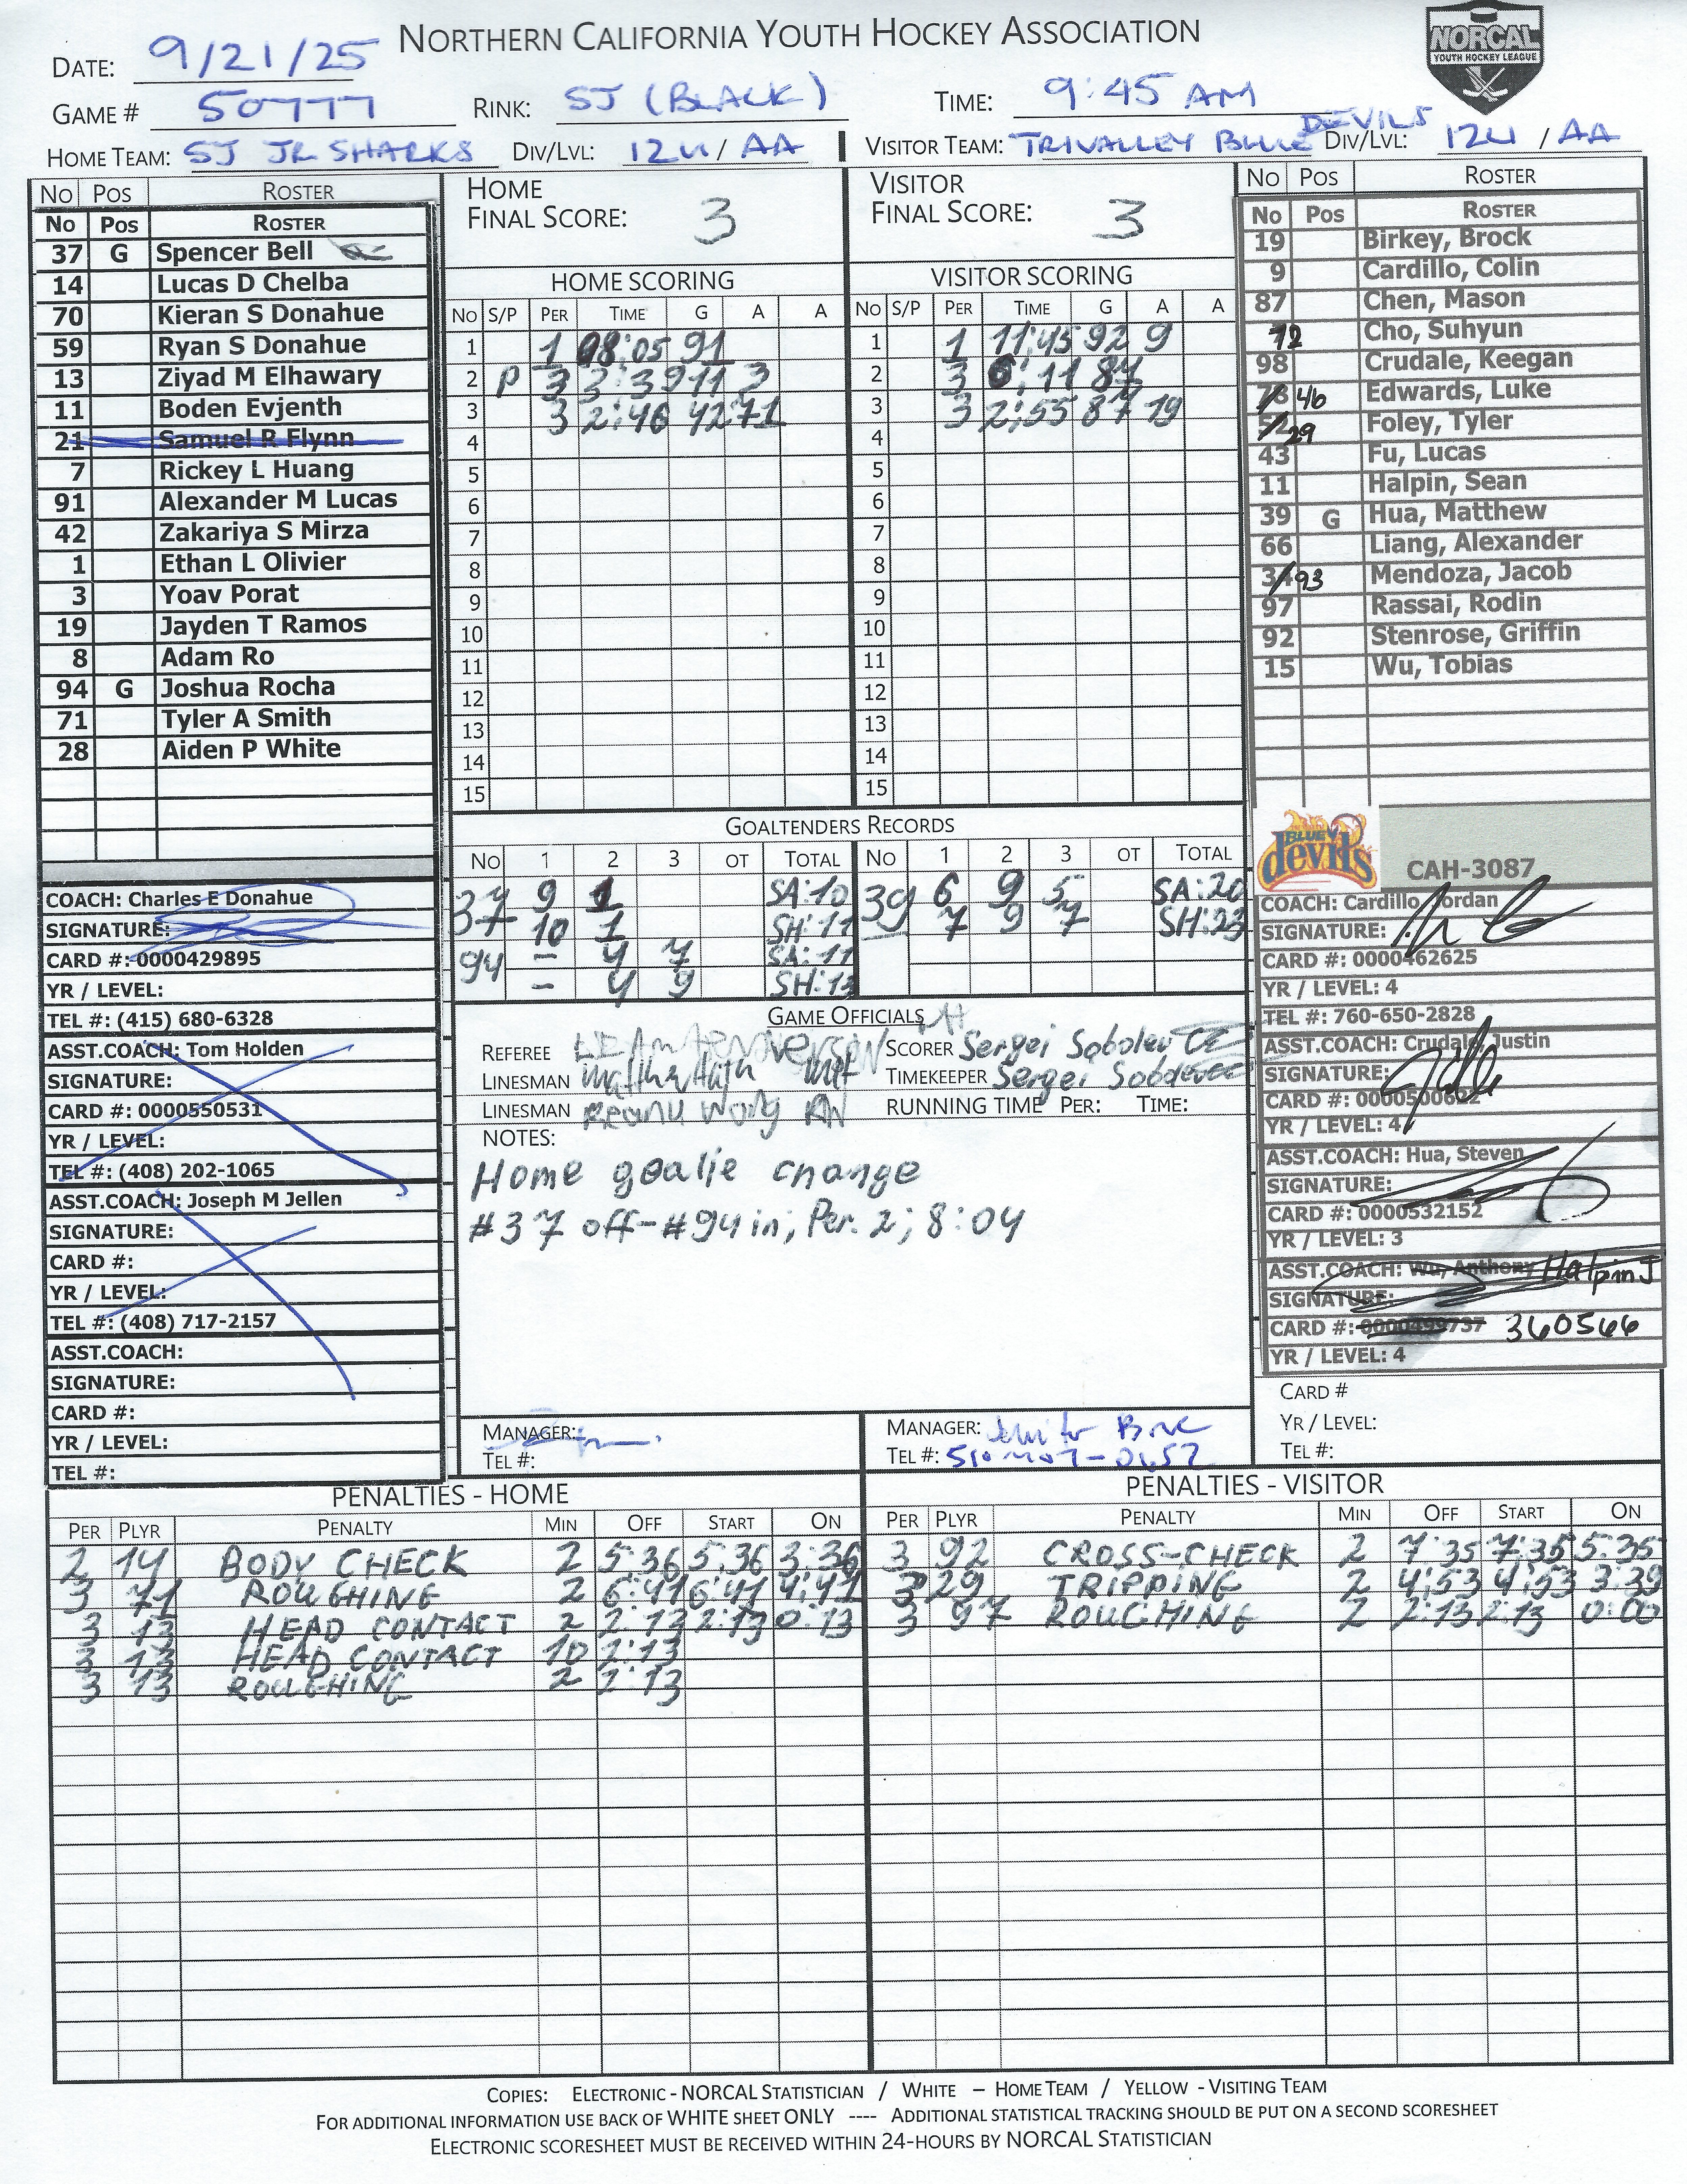 NORTHERN CALIFORNIA YOUTH HOCKEY ASSOCIATION
NORCAL
YOUTH HOCKEY LEAGUE
DATE: 9/21/25
GAME # 50777 RINK: SJ (BLACK) TIME: 9:45 AM
HOME TEAM: SJ JR SHARKS DIV/LVL: 12U / AA VISITOR TEAM: TRIVALLEY BLUE DEVILS DIV/LVL: 12U / AA
NO POS ROSTER
NO POS ROSTER
37 G Spencer Bell
14 Lucas D Chelba
70 Kieran S Donahue
59 Ryan S Donahue
13 Ziyad M Elhawary
11 Boden Evjenth
21 Samuel R Flynn
7 Rickey L Huang
91 Alexander M Lucas
42 Zakariya S Mirza
1 Ethan L Olivier
3 Yoav Porat
19 Jayden T Ramos
8 Adam Ro
94 G Joshua Rocha
71 Tyler A Smith
28 Aiden P White
COACH: Charles E Donahue
SIGNATURE:
CARD #: 0000429895
YR / LEVEL:
TEL #: (415) 680-6328
ASST.COACH: Tom Holden
SIGNATURE:
CARD #: 0000550531
YR / LEVEL:
TEL #: (408) 202-1065
ASST.COACH: Joseph M Jellen
SIGNATURE:
CARD #:
YR / LEVEL:
TEL #: (408) 717-2157
ASST.COACH:
SIGNATURE:
CARD #:
YR / LEVEL:
TEL #:
HOME
FINAL SCORE: 3
VISITOR
FINAL SCORE: 3
HOME SCORING
NO S/P PER TIME G A A
1 1 08:05 91
2 P 3 3:39 11 3
3 3 2:46 42 71
4
5
6
7
8
9
10
11
12
13
14
15
VISITOR SCORING
NO S/P PER TIME G A A
1 1 11:45 92 9
2 3 6:11 87
3 3 2:55 87 19
4
5
6
7
8
9
10
11
12
13
14
15
GOALTENDERS RECORDS
NO 1 2 3 OT TOTAL NO 1 2 3 OT TOTAL
37 9 1 SA:10 39 6 9 5 SA:20
37 10 1 SH:11 7 9 7 SH:23
94 – 4 7 SA:11
– 4 9 SH:13
GAME OFFICIALS
REFEREE SCORER Sergei Sobolev
LINESMAN TIMEKEEPER Sergei Sobolev
LINESMAN Keanu Wong KW RUNNING TIME PER: TIME:
NOTES:
Home goalie change
#37 off-#94 in; Per. 2; 8:04
MANAGER:
TEL #:
MANAGER:
TEL #:
NO POS ROSTER
NO POS ROSTER
19 Birkey, Brock
9 Cardillo, Colin
87 Chen, Mason
12 Cho, Suhyun
98 Crudale, Keegan
78 46 Edwards, Luke
52 29 Foley, Tyler
43 Fu, Lucas
11 Halpin, Sean
39 G Hua, Matthew
66 Liang, Alexander
34 93 Mendoza, Jacob
97 Rassai, Rodin
92 Stenrose, Griffin
15 Wu, Tobias
BLUE devils
CAH-3087
COACH: Cardillo, Jordan
SIGNATURE:
CARD #: 0000462625
YR / LEVEL: 4
TEL #: 760-650-2828
ASST.COACH: Crudale, Justin
SIGNATURE:
CARD #:
YR / LEVEL: 4
ASST.COACH: Hua, Steven
SIGNATURE:
CARD #: 0000532152
YR / LEVEL: 3
ASST.COACH: Wu, Anthony Halpin J
SIGNATURE:
CARD #: 0000499737 360566
YR / LEVEL: 4
CARD #
YR / LEVEL:
TEL #:
PENALTIES - HOME
PER PLYR PENALTY MIN OFF START ON
2 14 BODY CHECK 2 5:36 5:36 3:36
3 71 ROUGHING 2 6:41 6:41 4:41
3 13 HEAD CONTACT 2 2:13 2:13 0:13
3 13 HEAD CONTACT 10 2:13
3 13 ROUGHING 2 2:13
PENALTIES - VISITOR
PER PLYR PENALTY MIN OFF START ON
3 92 CROSS-CHECK 2 7:35 7:35 5:35
3 29 TRIPPING 2 4:53 4:53 3:39
3 97 ROUGHING 2 2:13 2:13 0:00
COPIES: ELECTRONIC - NORCAL STATISTICIAN / WHITE – HOME TEAM / YELLOW - VISITING TEAM
FOR ADDITIONAL INFORMATION USE BACK OF WHITE SHEET ONLY ---- ADDITIONAL STATISTICAL TRACKING SHOULD BE PUT ON A SECOND SCORESHEET
ELECTRONIC SCORESHEET MUST BE RECEIVED WITHIN 24-HOURS BY NORCAL STATISTICIAN